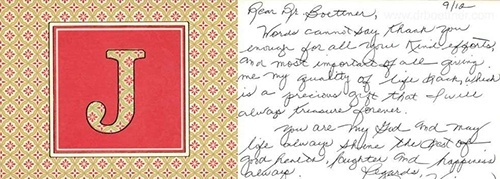 J
9/12
Dear Dr Boettner,
Words cannot say thank you
enough for all your kind efforts,
and most important of all giving
me my quality of life back which
is a precious gift that I will
always treasure forever.
You are my God and may
life always shine the best of
God health, laughter and happiness
always. Regards,